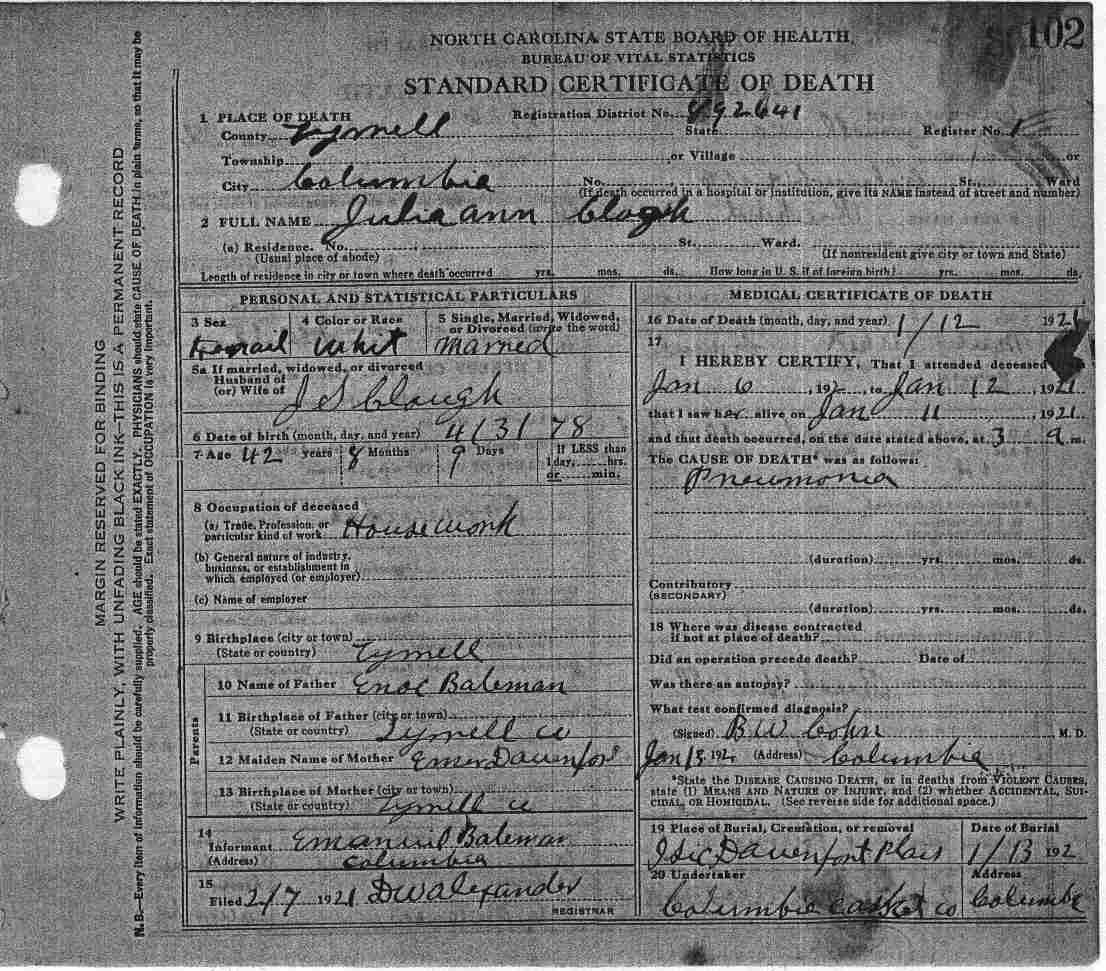 102
NORTH CAROLINA STATE BOARD OF HEALTH
BUREAU OF VITAL STATISTICS
STANDARD CERTIFICATE OF DEATH
1 PLACE OF DEATH Registration District No. 4892641
County Tyrrell State Register No. 1
Township or Village or
City Columbia No. St., Ward
(If death occurred in a hospital or institution, give its NAME instead of street and number)
2 FULL NAME Julia ann Clough
(a) Residence. No. St. Ward.
(Usual place of abode) (If nonresident give city or town and State)
Length of residence in city or town where death occurred yrs. mos. ds. How long in U. S. if of foreign birth? yrs. mos. ds.
PERSONAL AND STATISTICAL PARTICULARS
3 Sex 4 Color or Race 5 Single, Married, Widowed, or Divorced (write the word)
Femail Whit married
5a If married, widowed, or divorced
Husband of
(or) Wife of J S Clough
6 Date of birth (month, day, and year) 4/3/78
7 Age 42 years 8 Months 9 Days If LESS than
1 day, hrs.
or min.
8 Occupation of deceased
(a) Trade, Profession, or
particular kind of work Housework
(b) General nature of industry,
business, or establishment in
which employed (or employer)
(c) Name of employer
9 Birthplace (city or town)
(State or country) Tyrrell
Parents
10 Name of Father Enoc Bateman
11 Birthplace of Father (city or town)
(State or country) Tyrrell co
12 Maiden Name of Mother Davenport
13 Birthplace of Mother (city or town)
(State or country) Tyrrell co
14
Informant Emanuel Bateman
(Address) Columbia
15
Filed 2/7 1921 DW alexander
REGISTRAR
MEDICAL CERTIFICATE OF DEATH
16 Date of Death (month, day, and year) 1/12 1921
17
I HEREBY CERTIFY, That I attended deceased
Jan 6, 192, to Jan 12, 1921
that I saw her alive on Jan 11, 1921
and that death occurred, on the date stated above, at 3 a m.
The CAUSE OF DEATH* was as follows:
Pneumonia
(duration) yrs. mos. ds.
Contributory
(SECONDARY)
(duration) yrs. mos. ds.
18 Where was disease contracted
if not at place of death?
Did an operation precede death? Date of
Was there an autopsy?
What test confirmed diagnosis?
(Signed) B W Cohn M. D.
Jan 192 (Address) Columbia
*State the DISEASE CAUSING DEATH, or in deaths from VIOLENT CAUSES,
state (1) MEANS AND NATURE OF INJURY, and (2) whether ACCIDENTAL, SUI-
CIDAL, OR HOMICIDAL. (See reverse side for additional space.)
19 Place of Burial, Cremation, or removal Date of Burial
Davenport Plais 1/13 192
20 Undertaker Address
Columbia Casket co Columbia
MARGIN RESERVED FOR BINDING
WRITE PLAINLY, WITH UNFADING BLACK INK—THIS IS A PERMANENT RECORD
N. B.—Every item of information should be carefully supplied. AGE should be stated EXACTLY. PHYSICIANS should state CAUSE OF DEATH in plain terms, so that it may be
properly classified. Exact statement of OCCUPATION is very important.